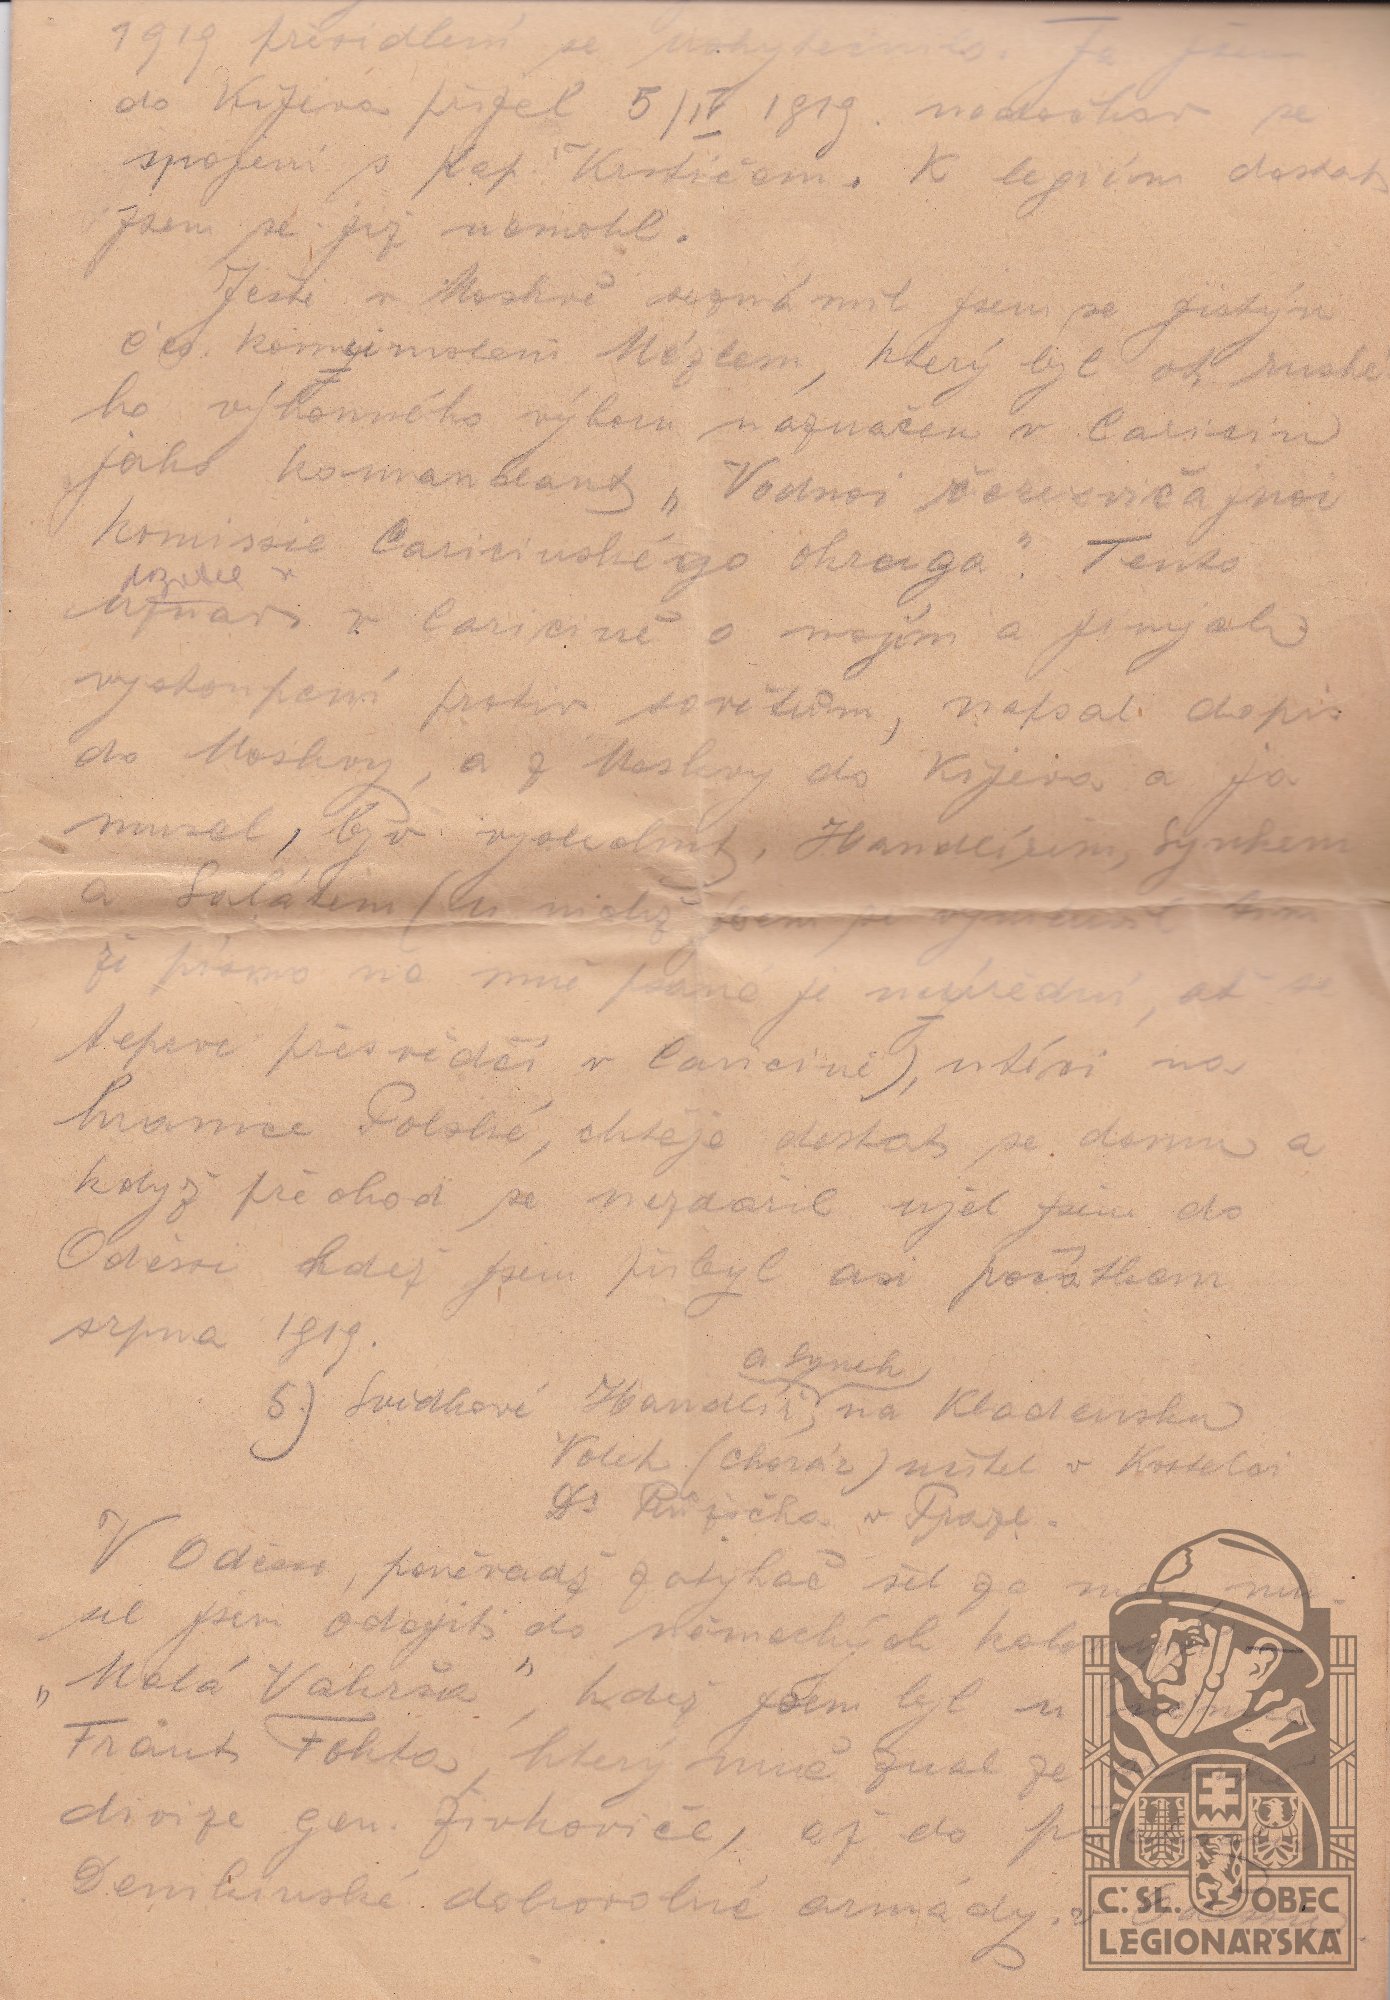 1919 přesídlení se uskutečnilo. Ja jsem
do Kijeva přijel 5/IV 1919. nedočkav se
spojení s kap. Krstičem. K legiím dostat
jsem se již nemohl.
Ješte v Moskvě seznámil jsem se jistým
čes. komunistem Mézlem, který byl od ruske
ho výkonného výboru náznačen v Caricin
jako komandant „Vodnoi črezvičajnoi
komissie Caricinského okruga". Tento
pozdee v
uznav v Caricině o mojím a jiných
vystoupení protiv sovětům, napsal dopis
do Moskvy, a z Moskvy do Kijeva a ja
musel, byv vyslednut, Handlířem, Synkem
a Salátem (u nichž jsem se vymluvil tím
že písmo na mně psané je neúřední, ať se
teprve přesvědčí v Caricině), utéci na
hranice Polské, chtěje dostat se domu a
když přechod se nezdařil ujel jsem do
Oděssi kdež jsem přibyl asi počátkem
srpna 1919.
a Synek
5) Svidkové Handlíř, na Kladensku
Volek (chorár) učitel v Kostelci
Dr Růžička v Praze.
V Oděsse, poněvadž zatykač šel za mn mu-
sel jsem odejiti do německých kolon
„Malá Vakrša", kdež jsem byl u
Frant Fohta, který mně znal ze
divize gen. Živkoviče, až do př
Denikinské dobrovolné armády. v
Č: SL. OBEC
LEGIONÁŘSKÁ